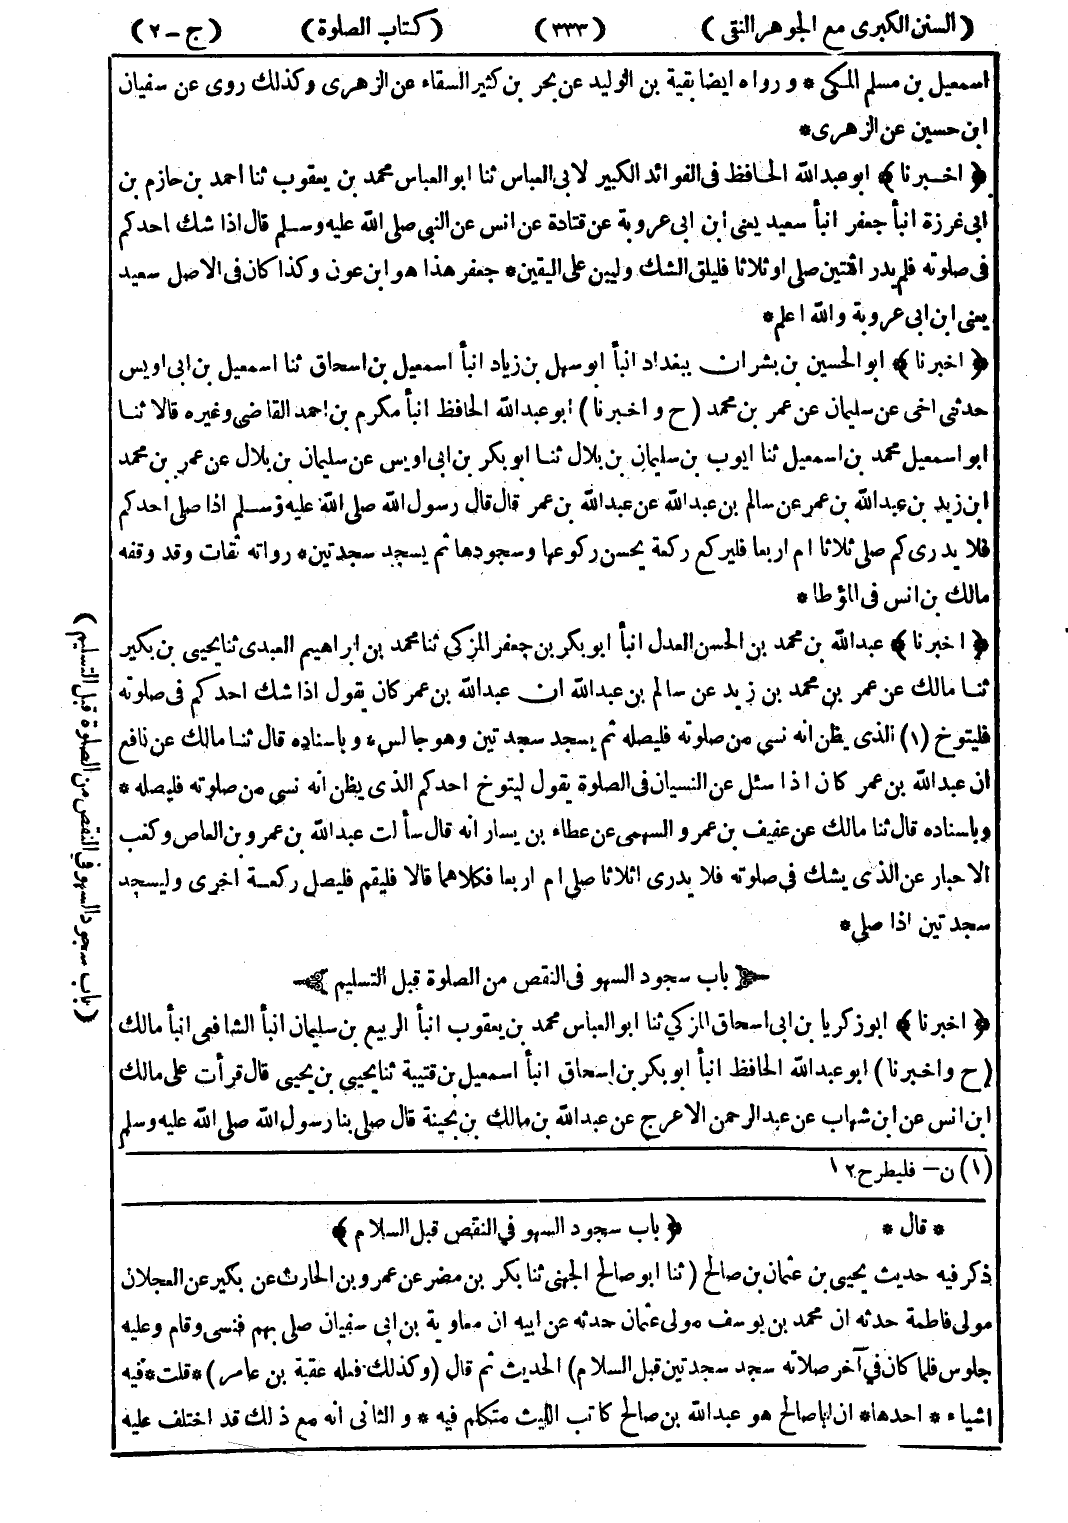 (السنن الكبرى مع الجوهر النقى) (٣٣٣) (كتاب الصلوة) (ج-٢)
اسمعيل بن مسلم المكى * و رواه ايضا بقية بن الوليد عن بحر بن كثير السقاء عن الزهرى وكذلك روى عن سفيان
ابن حسين عن الزهرى *
﴿ اخبرنا ﴾ ابو عبد الله الحافظ فى الفوائد الكبير لابى العباس ثنا ابو العباس محمد بن يعقوب ثنا احمد بن حازم بن
ابى غرزة انبأ جعفر انبأ سعيد يعنى ابن ابى عروبة عن قتادة عن انس عن النبى صلى الله عليه وسلم قال اذا شك احدكم
فى صلوته فلم يدر اثنتين صلى او ثلاثا فليلق الشك وليبن على اليقين * جعفر هذا هو ابن عون وكذا كان فى الاصل سعيد
يعنى ابن ابى عروبة والله اعلم *
﴿ اخبرنا ﴾ ابو الحسين بن بشران ببغداد انبأ ابو سهل بن زياد انبأ اسمعيل بن اسحاق ثنا اسمعيل بن ابى اويس
حدثنى اخى عن سليمان عن عمر بن محمد (ح واخبرنا) ابو عبد الله الحافظ انبأ مكرم بن احمد القاضى وغيره قالا ثنا
ابو اسمعيل محمد بن اسمعيل ثنا ايوب بن سليمان بن بلال ثنا ابو بكر بن ابى اويس عن سليمان بن بلال عن عمر بن محمد
ابن زيد بن عبد الله بن عمر عن سالم بن عبد الله عن عبد الله بن عمر قال قال رسول الله صلى الله عليه وسلم اذا صلى احدكم
فلا يدرى كم صلى ثلاثا ام اربعا فليركع ركعة يحسن ركوعها وسجودها ثم يسجد سجدتين * رواته ثقات وقد وقفه
مالك بن انس فى المؤطا *
﴿ اخبرنا ﴾ عبد الله بن محمد بن الحسن العدل انبأ ابو بكر بن جعفر المزكى ثنا محمد بن ابراهيم العبدى ثنا يحيى بن بكير
ثنا مالك عن عمر بن محمد بن زيد عن سالم بن عبد الله ان عبد الله بن عمر كان يقول اذا شك احدكم فى صلوته
فليتوخ (١) الذى يظن انه نسى من صلوته فليصله ثم يسجد سجدتين وهو جالس * وباسناده قال ثنا مالك عن نافع
ان عبد الله بن عمر كان اذا سئل عن النسيان فى الصلوة يقول ليتوخ احدكم الذى يظن انه نسى من صلوته فليصله *
وباسناده قال ثنا مالك عن عفيف بن عمرو السهمى عن عطاء بن يسار انه قال سألت عبد الله بن عمرو بن العاص وكعب
الاحبار عن الذى يشك فى صلوته فلا يدرى اثلاثا صلى ام اربعا فكلاهما قالا فليقم فليصل ركعة اخرى وليسجد
سجدتين اذا صلى *
باب سجود السهو فى النقص من الصلوة قبل التسليم
﴿ اخبرنا ﴾ ابو زكريا بن ابى اسحاق المزكى ثنا ابو العباس محمد بن يعقوب انبأ الربيع بن سليمان انبأ الشافعى انبأ مالك
(ح واخبرنا) ابو عبد الله الحافظ انبأ ابو بكر بن اسحاق انبأ اسمعيل بن قتيبة ثنا يحيى بن يحيى قال قرأت على مالك
ابن انس عن ابن شهاب عن عبد الرحمن الاعرج عن عبد الله بن مالك بن بحينة قال صلى بنا رسول الله صلى الله عليه وسلم
(١) ن - فليطرح ١٢
* قال * ﴿ باب سجود السهو في النقص قبل السلام ﴾
ذكر فيه حديث يحيى بن عثمان بن صالح (ثنا ابو صالح الجهنى ثنا بكر بن مضر عن عمرو بن الحارث عن بكير عن العجلان
مولى فاطمة حدثه ان محمد بن يوسف مولى عثمان حدثه عن ابيه ان معاوية بن ابى سفيان صلى بهم فنسى وقام وعليه
جلوس فلما كان في آخر صلاته سجد سجدتين قبل السلام) الحديث ثم قال (وكذلك فعله عقبة بن عامر) * قلت * فيه
اشياء * احدها * ان ابا صالح هو عبد الله بن صالح كاتب الليث متكلم فيه * والثانى انه مع ذلك قد اختلف عليه
(باب سجود السهو في النقص من الصلوة قبل التسليم)